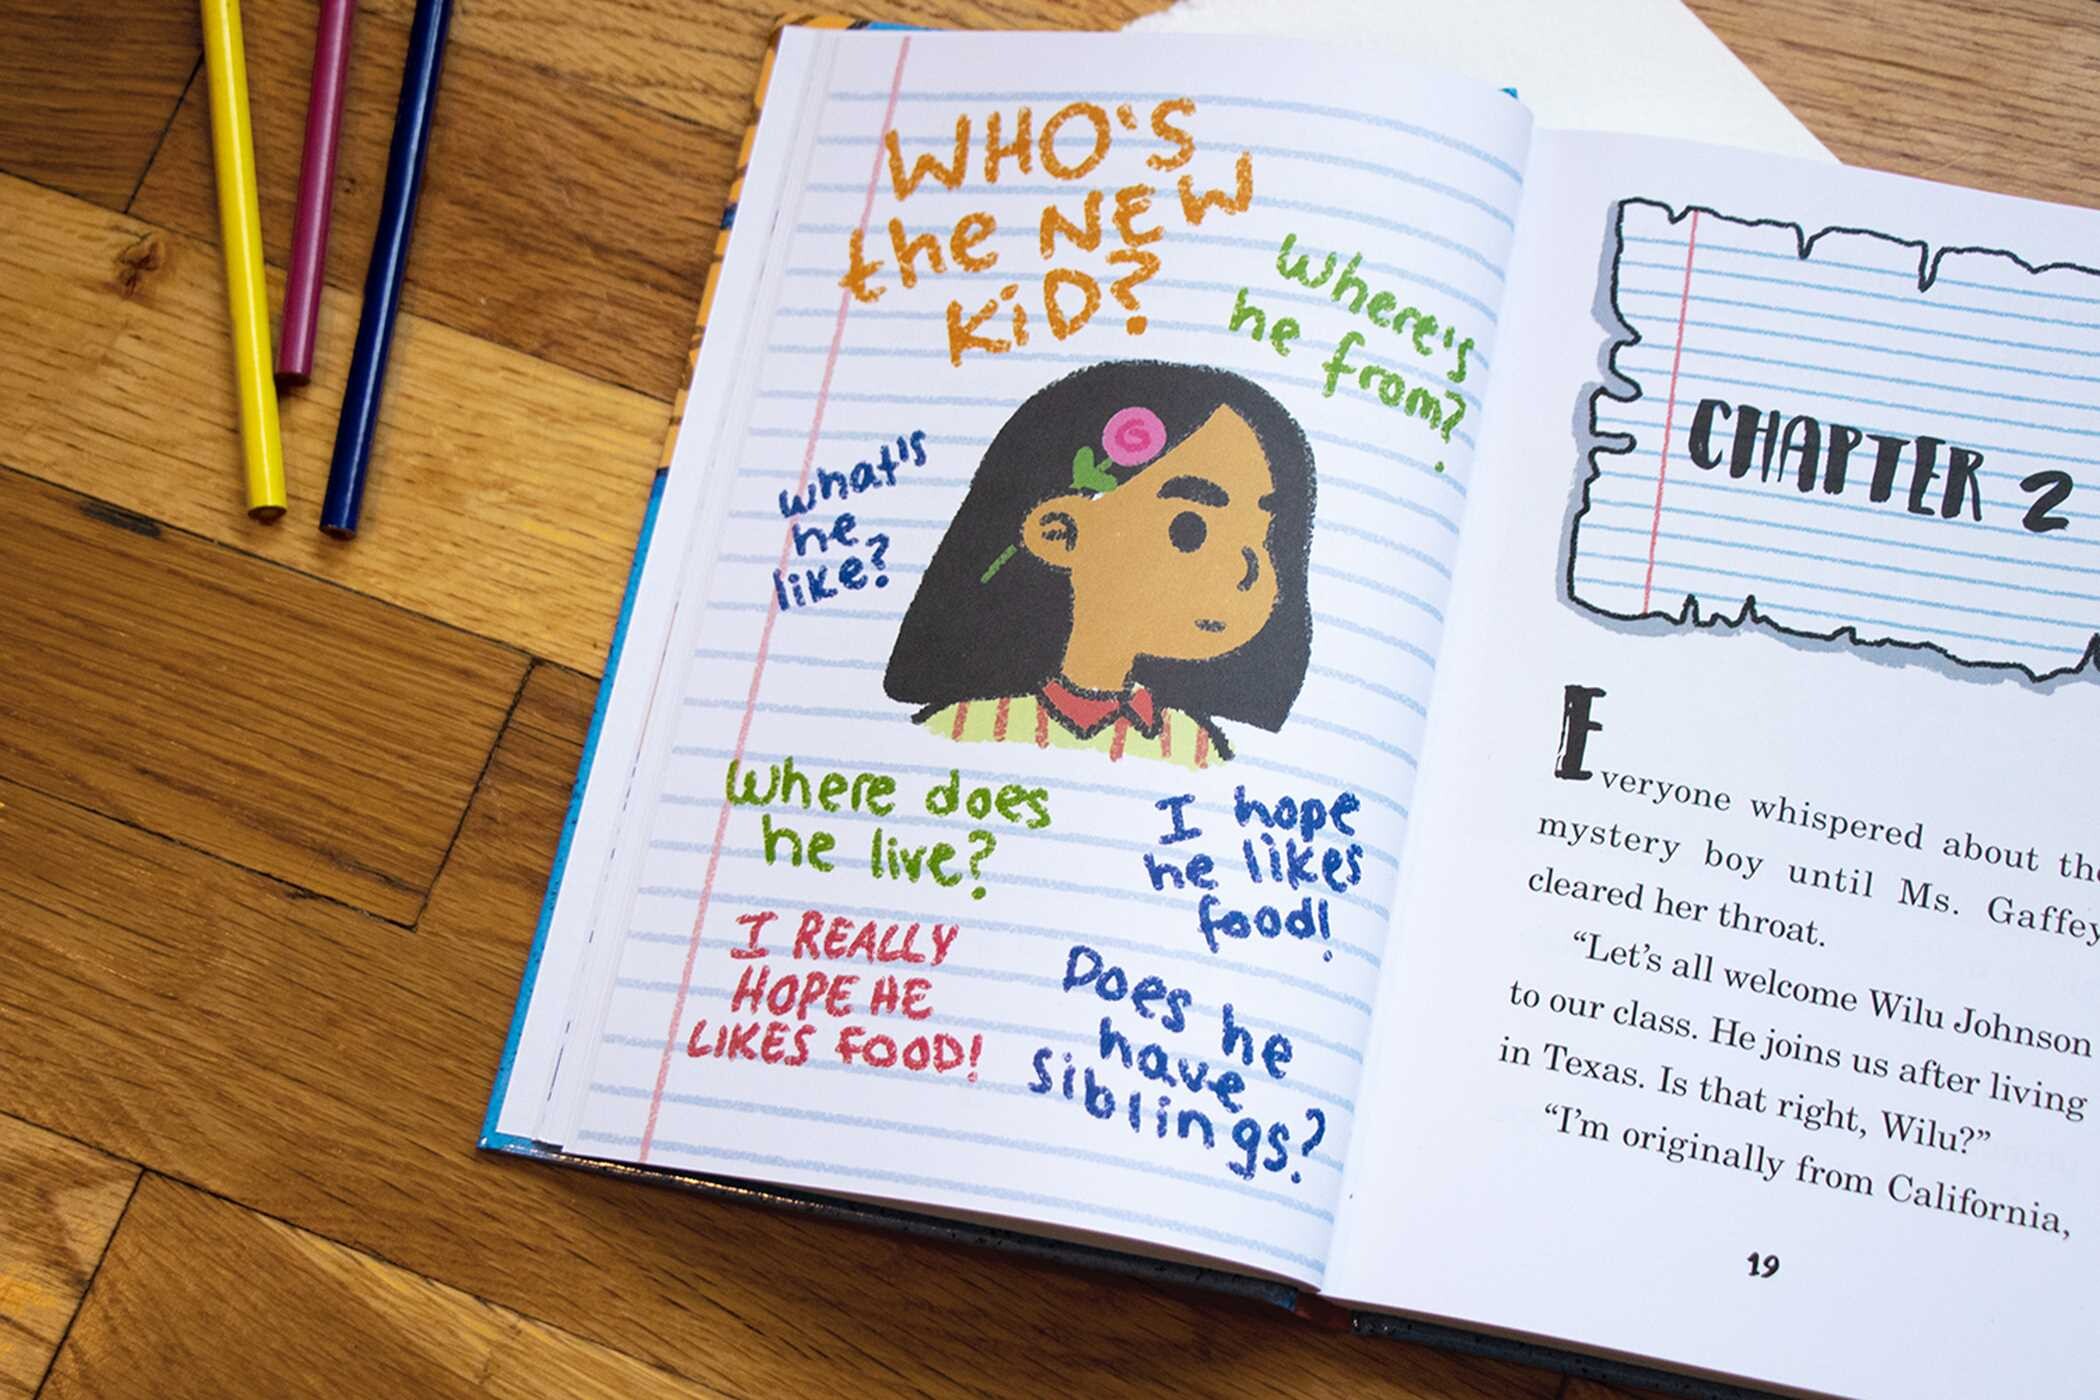 WHO'S
the NEW
KiD?
Where's
he from?
what's
he
like?
Where does
he live?
I hope
he likes
food!
I REALLY
HOPE HE
LIKES FOOD!
Does he
have
siblings?
CHAPTER 2
Everyone whispered about the
mystery boy until Ms. Gaffey
cleared her throat.
“Let’s all welcome Wilu Johnson
to our class. He joins us after living
in Texas. Is that right, Wilu?”
“I’m originally from California,
19